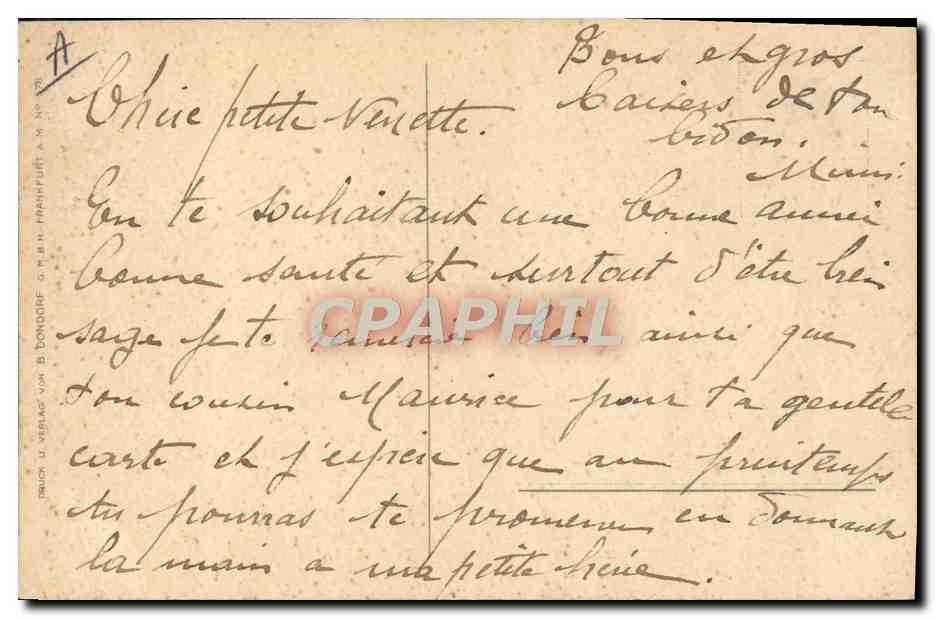 A
Bons et gros
baisers de ton
Mimi.
Chère petite Nenette.
En te souhaitant une bonne année
bonne santé et surtout d'être bien
sage je te remercie bien ainsi que
ton cousin Maurice pour ta gentille
carte et j'espère que au printemps
tu pourras te promener en donnant
la main a ma petite
CPAPHIL
DRUCK U. VERLAG VON B. DONDORF G.M.B.H. FRANKFURT A. M. NO